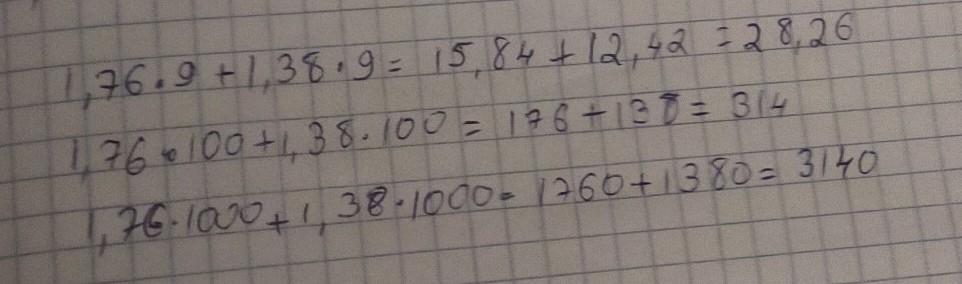 1,76·9+1,38·9= 15,84+12,42=28,26
1,76·100+1,38·100=176+138=314
1,76·1000+1,38·1000=1760+1380=3140